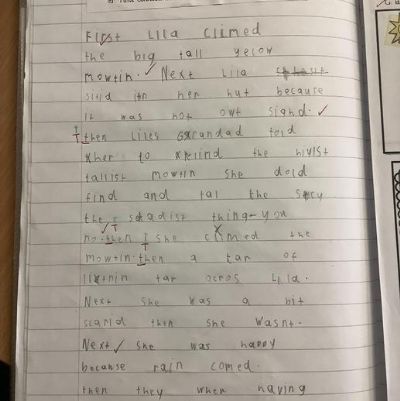 First Lila climed
the big tall yelow
mowtin. Next Lila
stid itn her hut because
it was not owt sighd.
then Liles Grandad told
her to xrind the hiyist
tallist mowtin She
find and tal the
the scadist thing you
no. then she climed the
mowtin. then a tar of
litnin tar acros Lila.
Next She was a bit
scard then She Wasnt.
Next she was happy
because rain comed.
then they when having